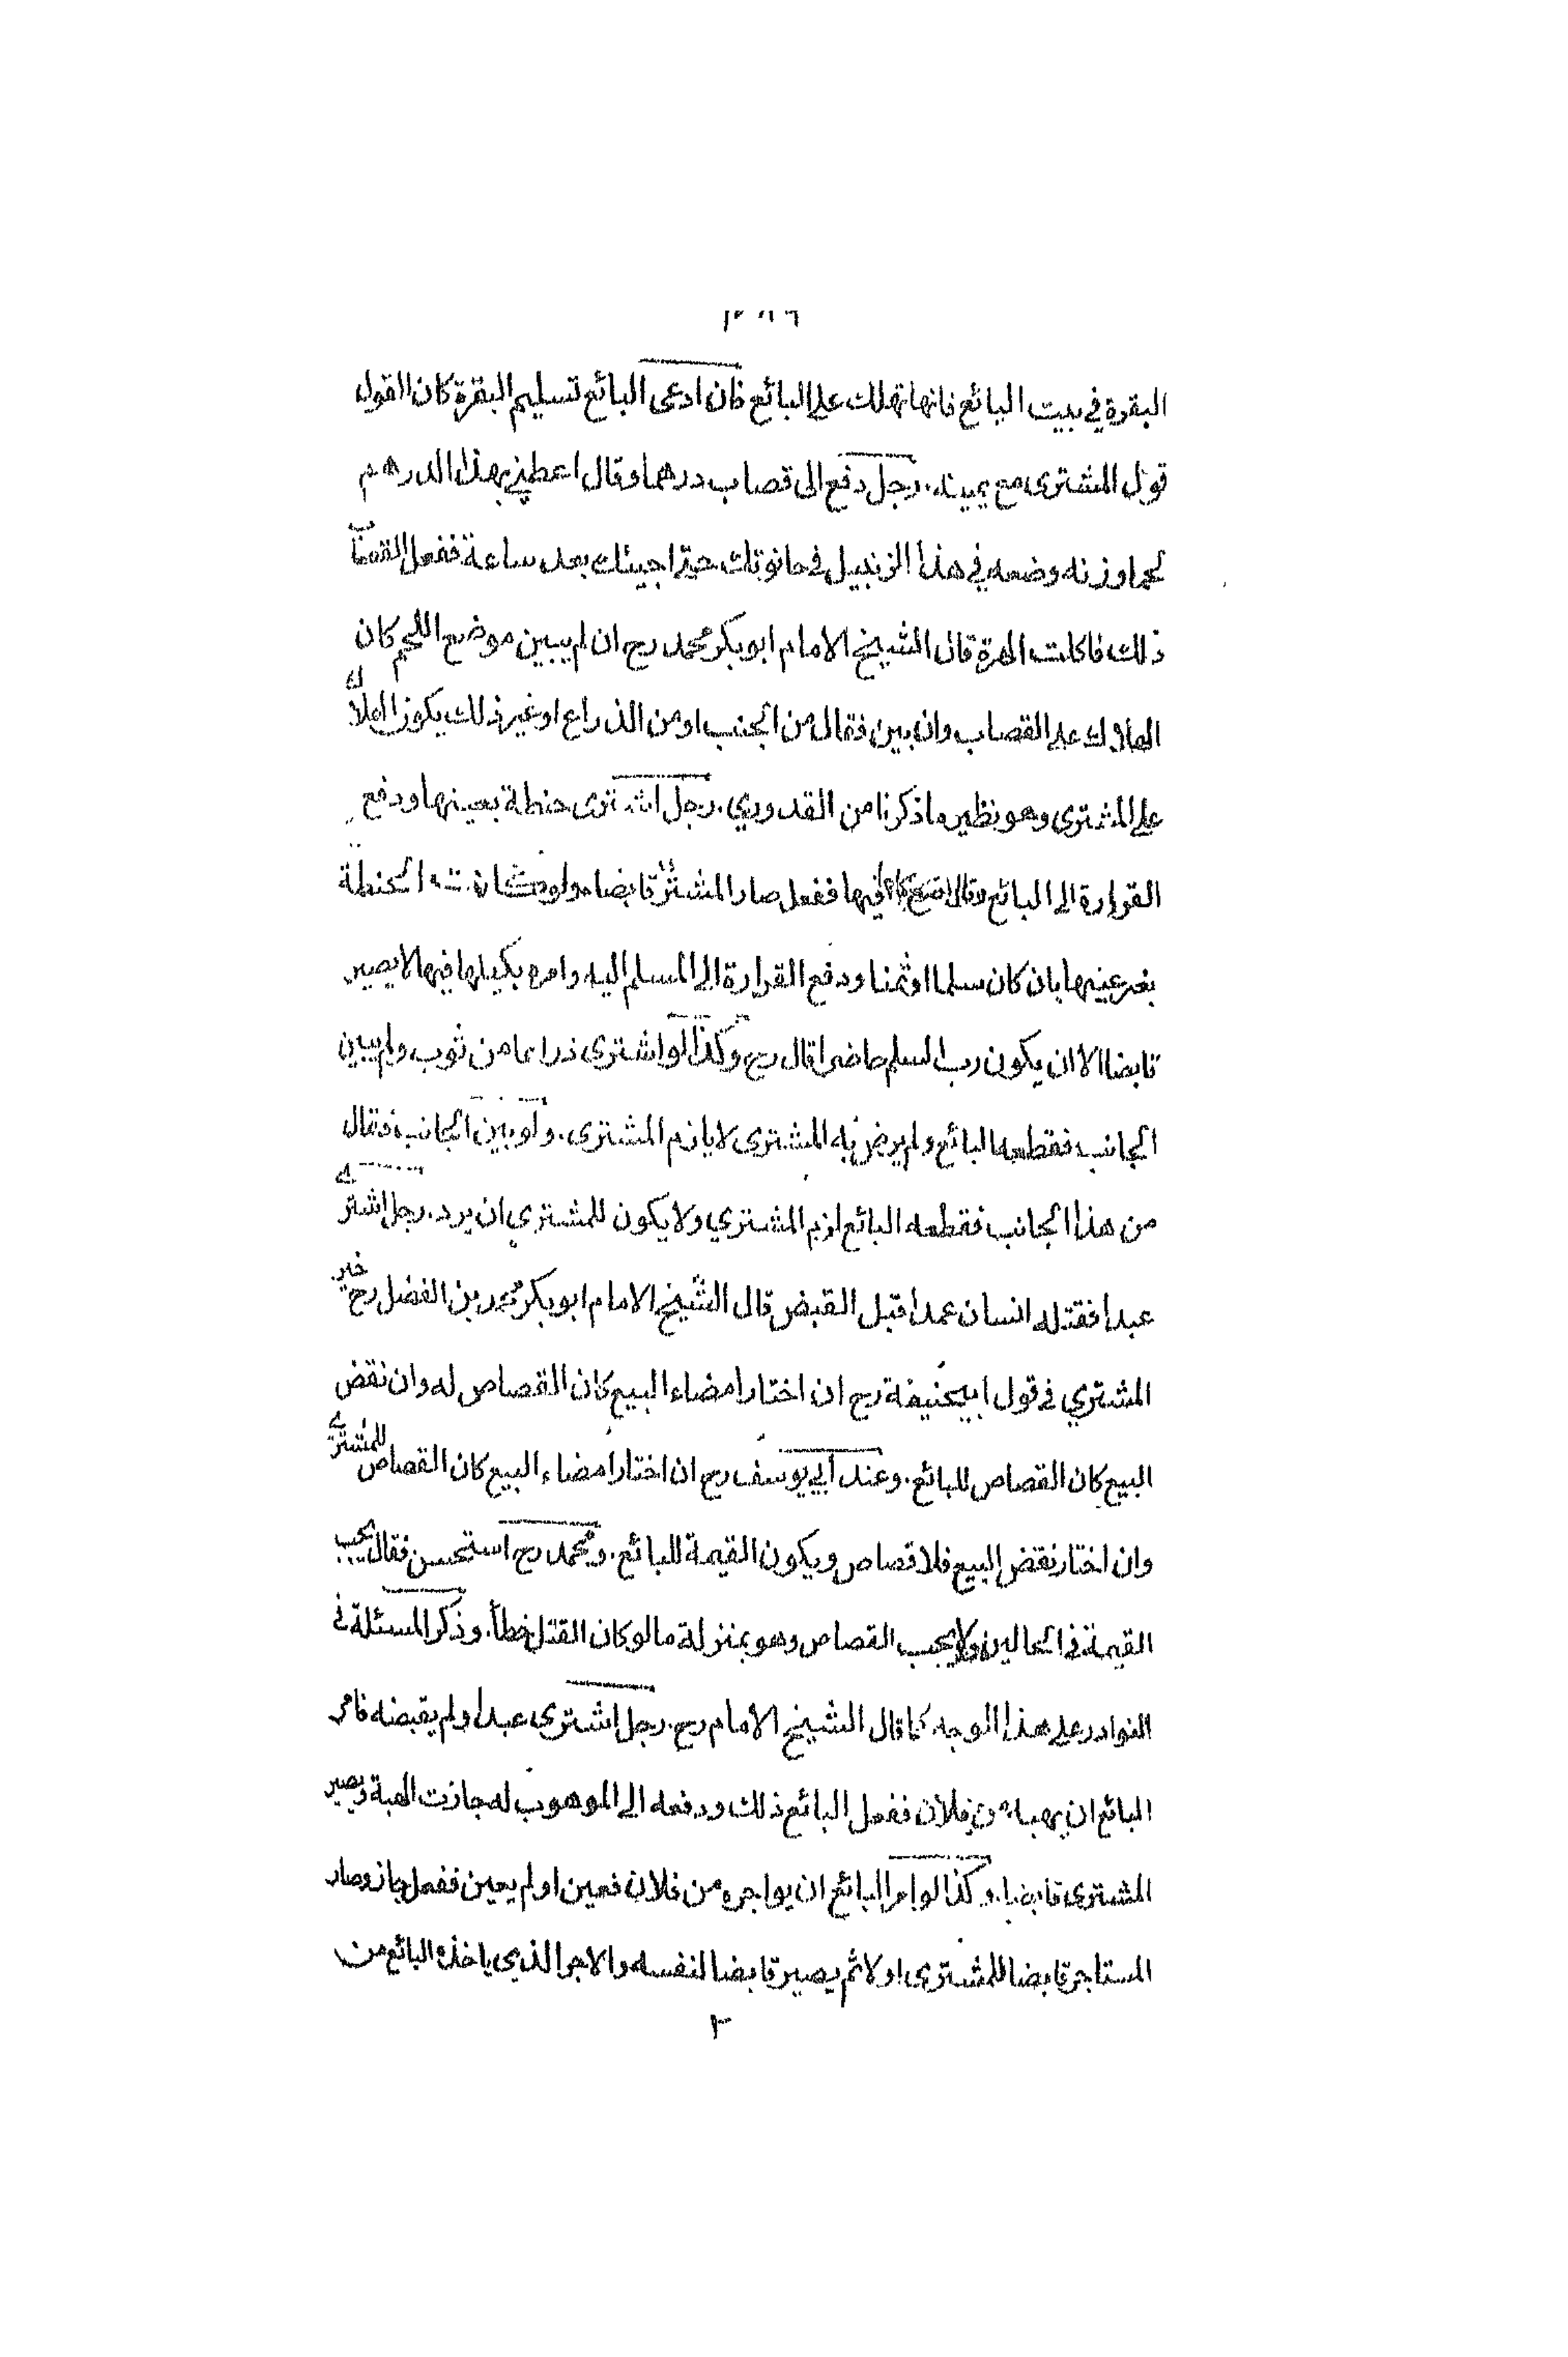 البقرة في بيت البائع فانها تهلك على البائع فان ادعى البائع تسليم البقرة كان القول
قول المشترى مع يمينه. رجل دفع الى قصاب درهما وقال اعطني بهذا الدرهم
لحما وزنه وضعه في هذا الزنبيل في حانوتك حتى اجيئك بعد ساعة ففعل القصاب
ذلك فاكلت الهرة قال الشيخ الامام ابو بكر محمد رح ان لم يبين موضع اللحم كان
الهلاك على القصاب وان بين فقال من الجنب او من الذراع او غير ذلك يكون الهلاك
على المشترى وهو نظير ما ذكرنا من القدوري. رجل اشترى حنطة بعينها ودفع
القرارة الى البائع وقال فيها ففعل صار المشترى قابضا ولو كانت الحنطة
بغير عينها بان كان سلما او ثمنا ودفع القرارة الى المسلم اليه وامره بكيلها فيها لا يصير
قابضا الا ان يكون رب السلم حاضرا قال رح وكذا لو اشترى ذراعا من ثوب ولم يبين
الجانب فقطعه البائع ولم يرض به المشترى لا يلزم المشترى. ولو بين الجانب فقال
من هذا الجانب فقطعه البائع لزم المشتري ولا يكون للمشتري ان يرد. رجل اشترى
عبدا فقتله انسان عمدا قبل القبض قال الشيخ الامام ابو بكر محمد بن الفضل رح خير
المشتري في قول ابيحنيفة رح ان اختار امضاء البيع كان القصاص له وان نقض
البيع كان القصاص للبائع. وعند ابي يوسف رح ان اختار امضاء البيع كان القصاص للمشترى
وان اختار نقض البيع فلا قصاص ويكون القيمة للبائع. ومحمد رح استحسن فقال يجب
القيمة في الحالين ولا يجب القصاص وهو بمنزلة ما لو كان القتل خطأ. وذكر المسئلة في
النوادر على هذا الوجه كما قال الشيخ الامام رح. رجل اشترى عبدا ولم يقبضه فامر
البائع ان يهبه من فلان ففعل البائع ذلك ودفعه الى الموهوب له جازت الهبة ويصير
المشترى قابضا. وكذا لو امر البائع ان يواجره من فلان فعين او لم يعين ففعل جاز وصار
المستاجر قابضا للمشترى اولا ثم يصير قابضا لنفسه والاجر الذي ياخذه البائع من
٢